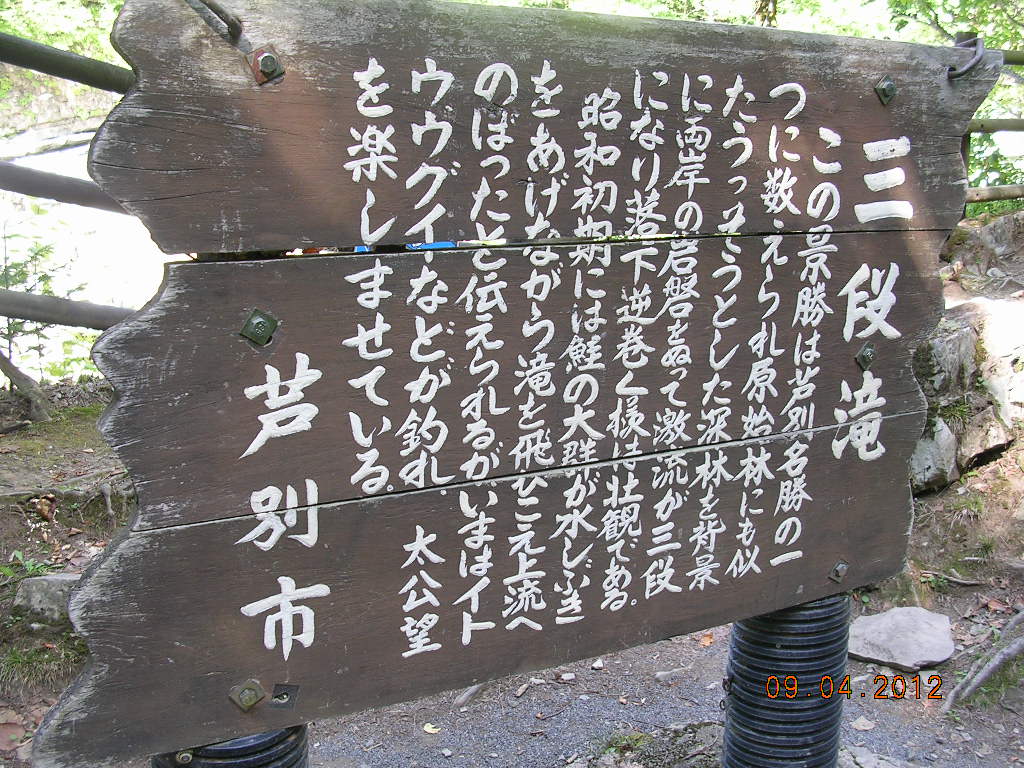 三段滝
この景勝は芦別名勝の一
つに数えられ原始林にも似
たうっそうとした深林を背景
に両岸の岩磐をぬって激流が三段
になり落下逆巻く様は壮観である。
昭和初期には鮭の大群が水しぶき
をあげながら滝を飛びこえ上流へ
のぼったと伝えられるが、いまはイト
ウウグイなどが釣れ、太公望
を楽しませている
芦別市
09.04.2012